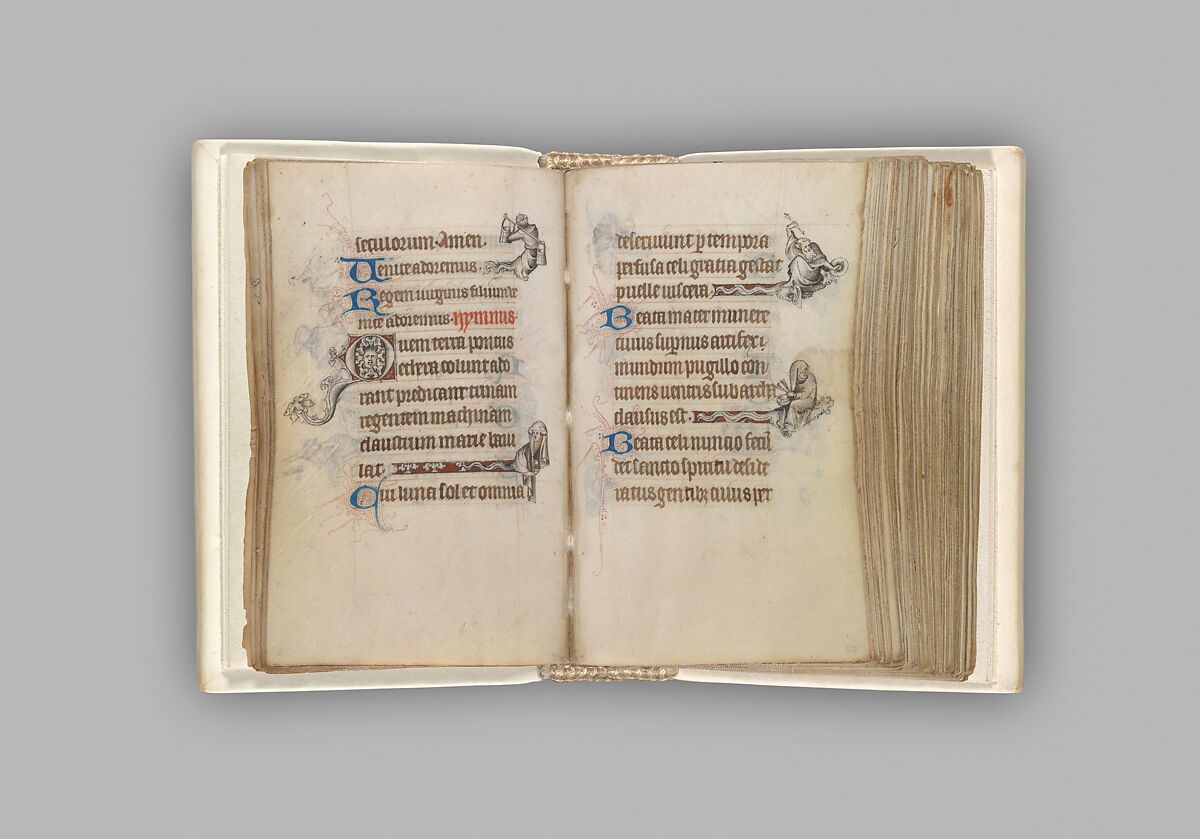 seculorum. Amen.
Uenite adoremus.
Regem uirginis filium ue
nite adoremus. Hymnus.
Quem terra pontus
ethera colunt ado
rant predicant trinam
regentem machinam
claustrum marie baiu
lat.
Qui luna sol et omnia
deseruiunt p tempora
perfusa celi gratia gestat
puelle uiscera
Beata mater munere
cuius supnus artifex
mundum pugillo con
tinens uentris sub archa
clausus est.
Beata celi nuncio fecū
det sancto spiritu deside
ratus gentibz cuius per